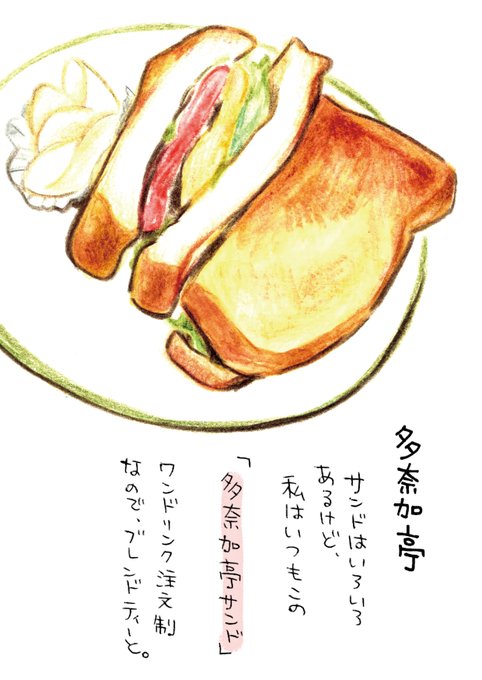 多奈加亭
サンドはいろいろ
あるけど、
私はいつもこの
「多奈加亭サンド」
ワンドリンク注文制
なので、ブレンドティーと。